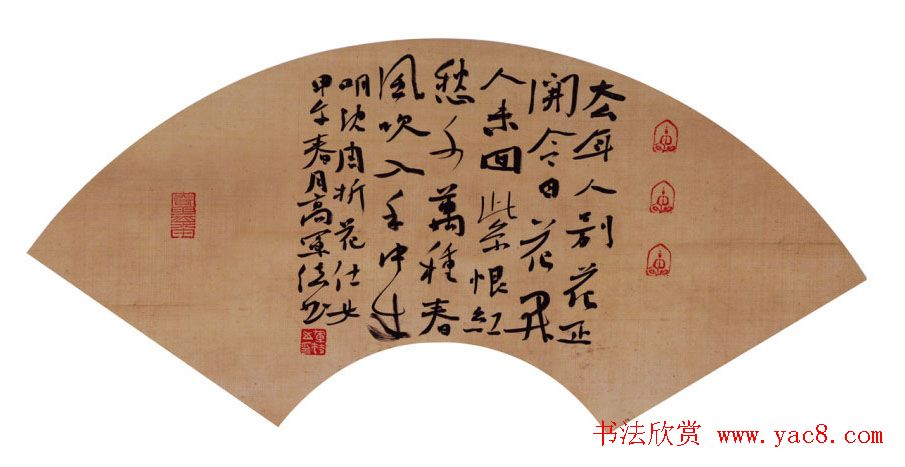 去年人别花正
開今日花开
人未回紫恨红
愁千萬種春
風吹入手中来
明沈周折花仕女
甲午春月高軍法书
书法欣赏 www.yac8.com